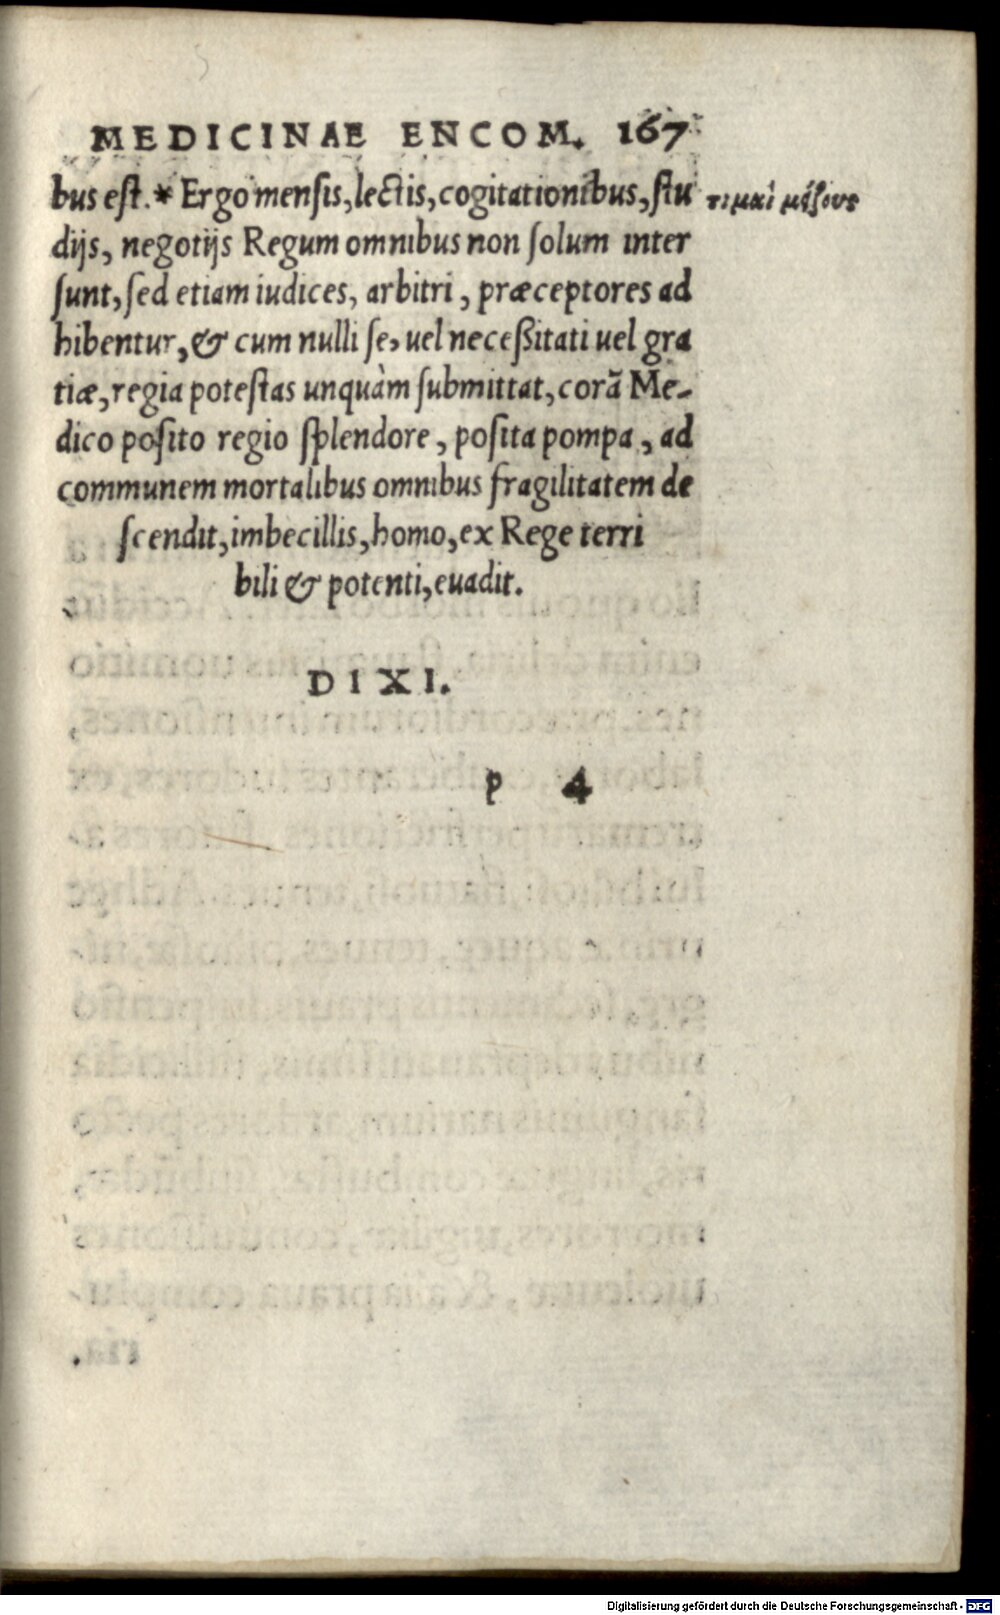 MEDICINAE ENCOM. 167
bus est. * Ergo mensis, lectis, cogitationibus, stu
τιμαὶ μείζους
dijs, negotijs Regum omnibus non solum inter
sunt, sed etiam iudices, arbitri, præceptores ad
hibentur, & cum nulli se, uel necessitati uel gra
tiæ, regia potestas unquàm submittat, corā Me-
dico posito regio splendore, posita pompa, ad
communem mortalibus omnibus fragilitatem de
scendit, imbecillis, homo, ex Rege terri
bili & potenti, euadit.
DIXI.
p 4
Digitalisierung gefördert durch die Deutsche Forschungsgemeinschaft - DFG